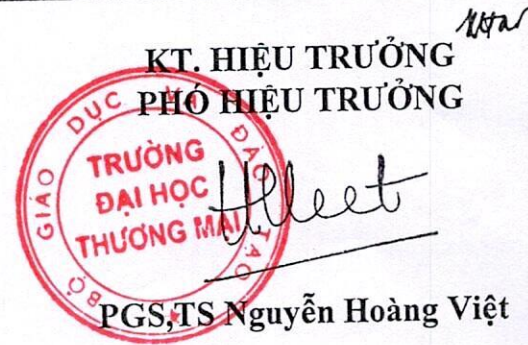 KT. HIỆU TRƯỞNG
PHÓ HIỆU TRƯỞNG
BỘ GIÁO DỤC VÀ ĐÀO TẠO
TRƯỜNG
ĐẠI HỌC
THƯƠNG MẠI
PGS,TS Nguyễn Hoàng Việt